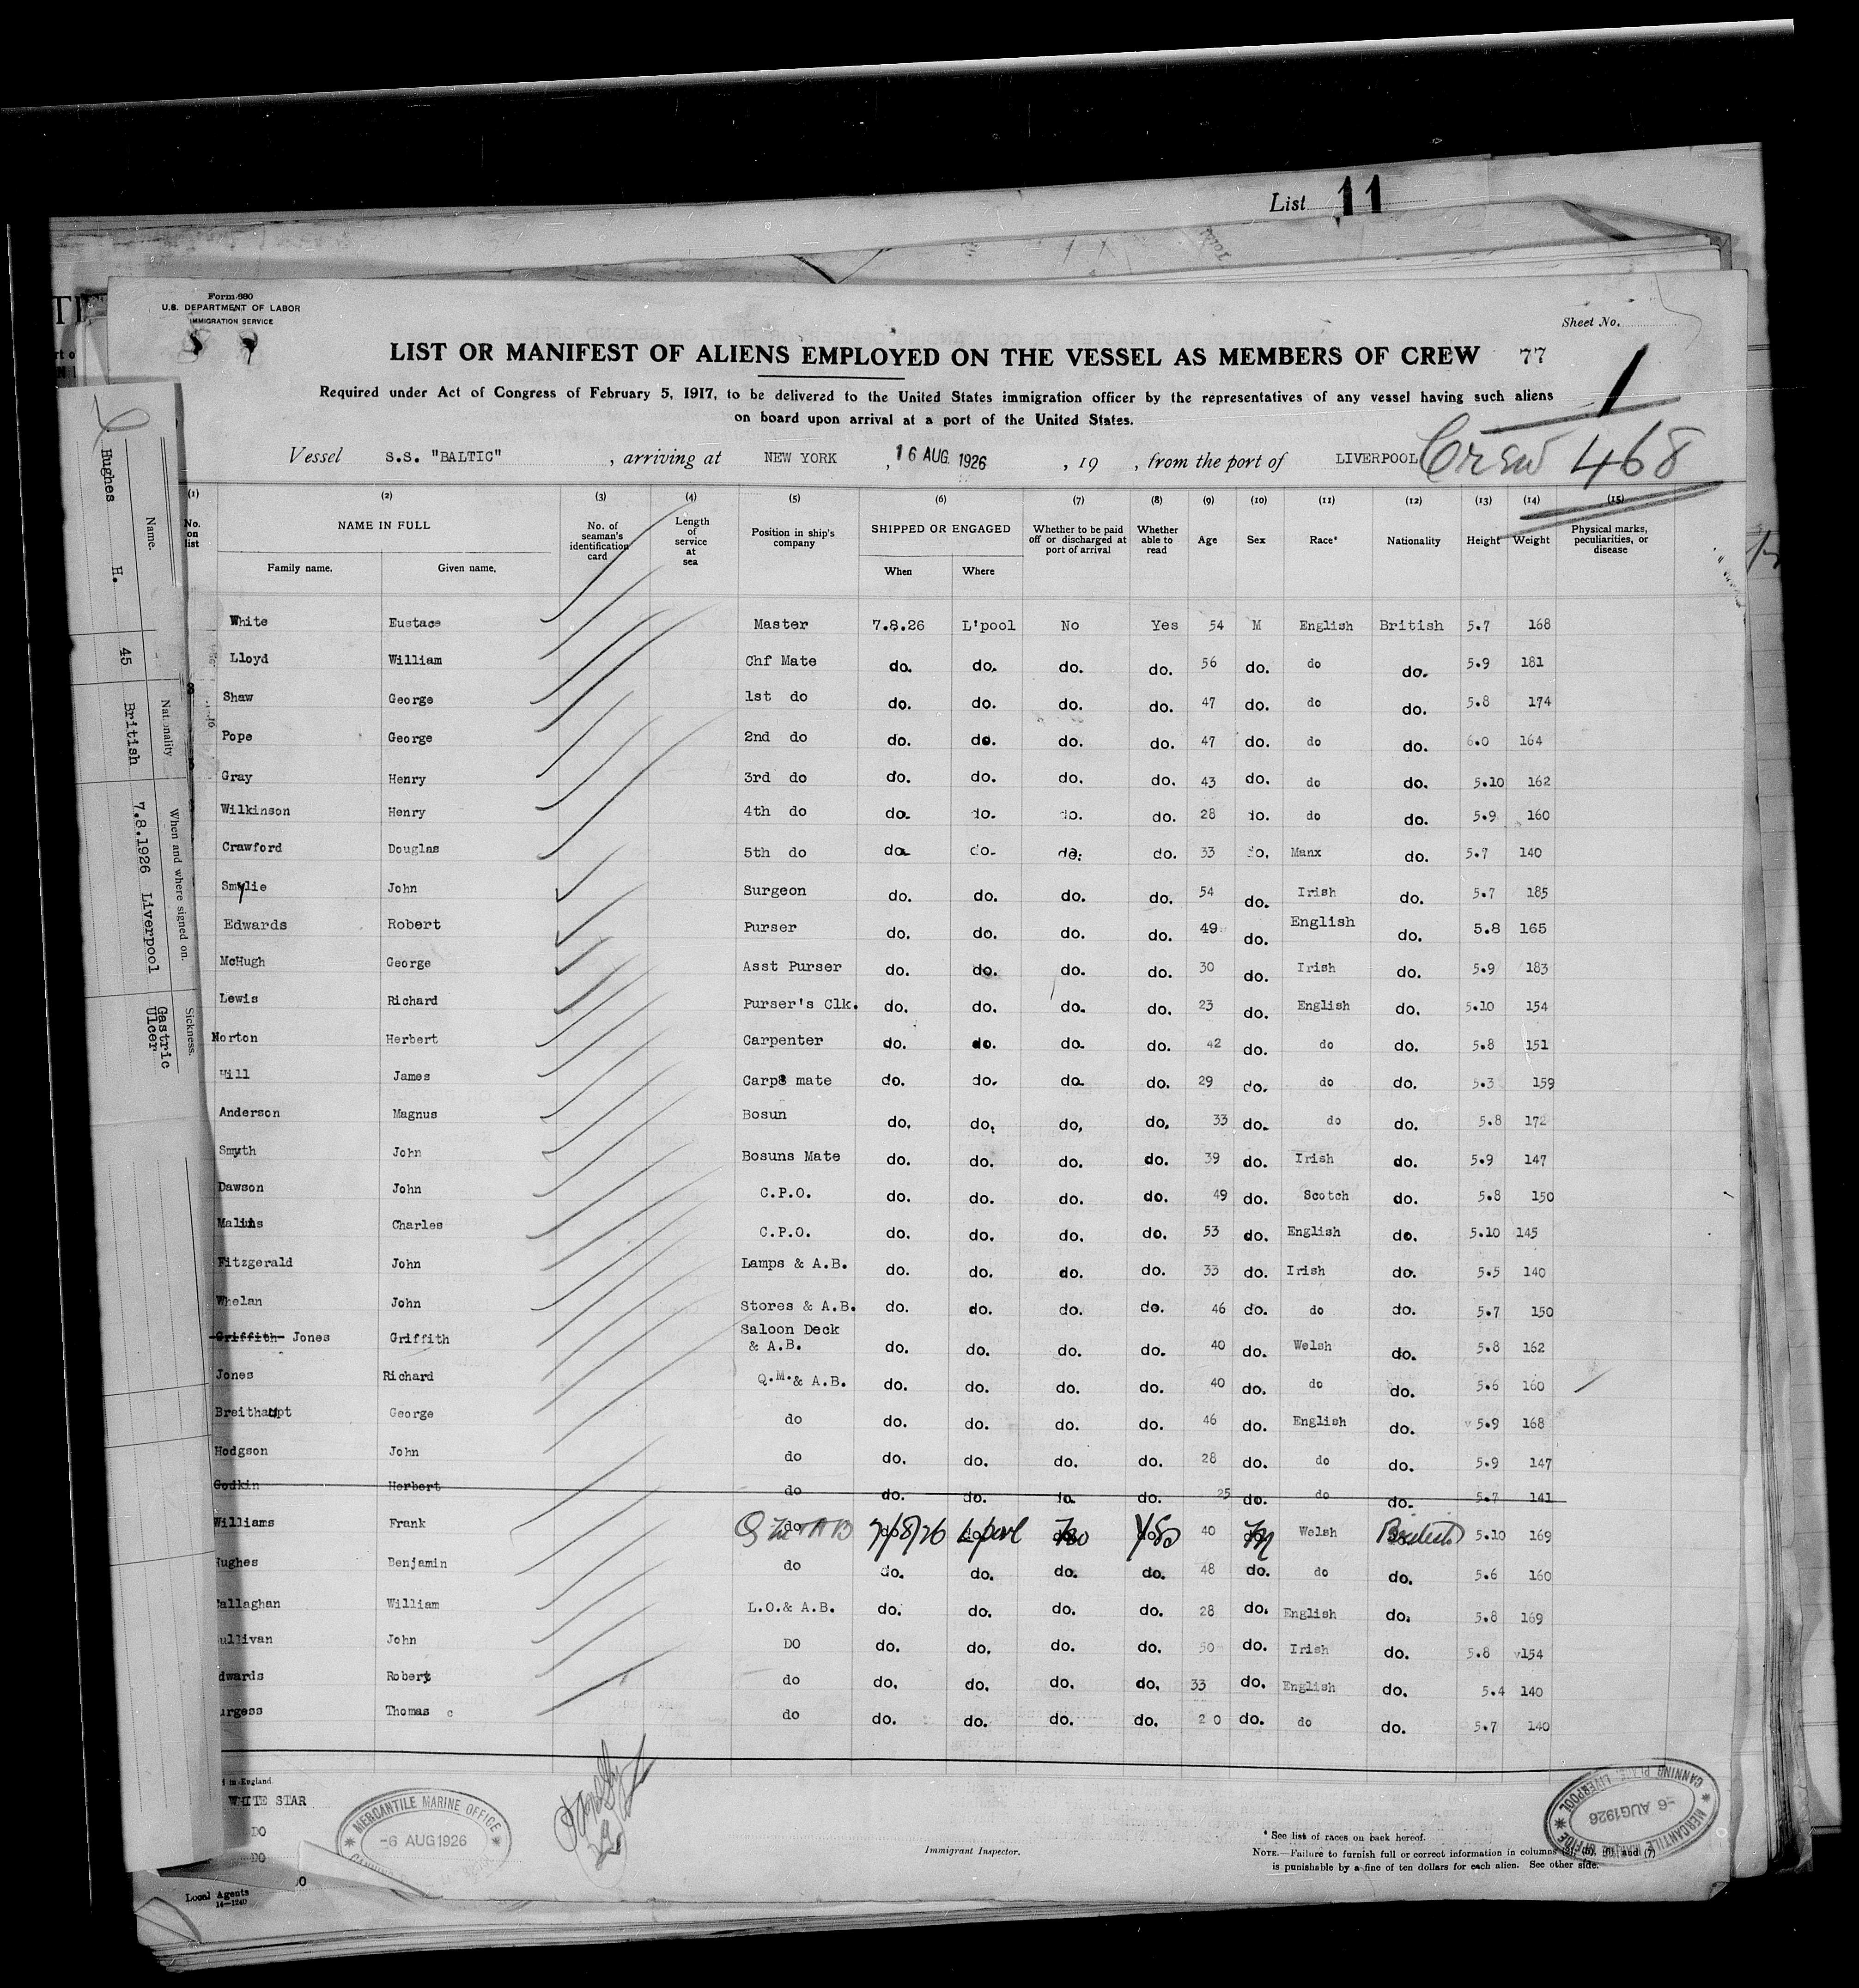 List 11
Form 680
U.S. DEPARTMENT OF LABOR
IMMIGRATION SERVICE
Sheet No.
LIST OR MANIFEST OF ALIENS EMPLOYED ON THE VESSEL AS MEMBERS OF CREW 77
1
Required under Act of Congress of February 5, 1917, to be delivered to the United States immigration officer by the representatives of any vessel having such aliens
on board upon arrival at a port of the United States.
Vessel S.S. "BALTIC" , arriving at NEW YORK , 16 AUG. 1926 , 19 , from the port of LIVERPOOL Crew 468
(1) (2) (3) (4) (5) (6) (7) (8) (9) (10) (11) (12) (13) (14) (15)
No. on list NAME IN FULL Family name. Given name. No. of seaman's identification card Length of service at sea Position in ship's company SHIPPED OR ENGAGED When Where Whether to be paid off or discharged at port of arrival Whether able to read Age Sex Race* Nationality Height Weight Physical marks, peculiarities, or disease
White Eustace Master 7.8.26 L'pool No Yes 54 M English British 5.7 168
Lloyd William Chf Mate do. do. do. do. 56 do. do do. 5.9 181
Shaw George 1st do do. do. do. do. 47 do. do do. 5.8 174
Pope George 2nd do do. do. do. do. 47 do. do do. 6.0 164
Gray Henry 3rd do do. do. do. do. 43 do. do do. 5.10 162
Wilkinson Henry 4th do do. do. do. do. 28 do. do do. 5.9 160
Crawford Douglas 5th do do. do. do. do. 33 do. Manx do. 5.7 140
Smylie John Surgeon do. do. do. do. 54 do. Irish do. 5.7 185
Edwards Robert Purser do. do. do. do. 49 do. English do. 5.8 165
McHugh George Asst Purser do. do. do. do. 30 do. Irish do. 5.9 183
Lewis Richard Purser's Clk. do. do. do. do. 23 do. English do. 5.10 154
Norton Herbert Carpenter do. do. do. do. 42 do. do do. 5.8 151
James mate do. do. do. do. 29 do. do do. 5.3 159
Anderson Magnus Bosun do. do. do. do. 33 do. do do. 5.8 172
Smyth John Bosuns Mate do. do. do. do. 39 do. Irish do. 5.9 147
Dawson John C.P.O. do. do. do. do. 49 do. Scotch do. 5.8 150
Charles C.P.O. do. do. do. do. 53 do. English do. 5.10 145
Fitzgerald John Lamps & A.B. do. do. do. do. 33 do. Irish do. 5.5 140
Whelan John Stores & A.B. do. do. do. do. 46 do. do do. 5.7 150
Griffith Jones Griffith Saloon Deck & A.B. do. do. do. do. 40 do. Welsh do. 5.8 162
Jones Richard Q.M.& A.B. do. do. do. do. 40 do. do do. 5.6 160
Breithaupt George do do. do. do. do. 46 do. English do. 5.9 168
Hodgson John do do. do. do. do. 28 do. do do. 5.9 147
Godkin Herbert do do. do. do. do. 25 do. do do. 5.7 141
Williams Frank Q M & AB 7/8/26 L'pool No Yes 40 M Welsh British 5.10 169
Hughes Benjamin do do. do. do. do. 48 do. do do. 5.6 160
Callaghan William L.O.& A.B. do. do. do. do. 28 do. English do. 5.8 169
ullivan John DO do. do. do. do. 50 do. Irish do. 5.8 154
dwards Robert do do. do. do. do. 33 do. English do. 5.4 140
urgess Thomas c do do. do. do. do. 20 do. do do. 5.7 140
in England.
WHITE STAR
DO
DO
Local Agents
14—1240
MERCANTILE MARINE OFFICE
-6 AUG 1926
Immigrant Inspector.
* See list of races on back hereof.
NOTE.—Failure to furnish full or correct information in columns (2), (5), (6), and (7)
is punishable by a fine of ten dollars for each alien. See other side.
MERCANTILE MARINE OFFICE
CANNING PLACE LIVERPOOL
-6 AUG 1926
Name. Nationality When and where signed on. Sickness.
Hughes H. 45 British 7.8.1926 Liverpool Gastric Ulcer